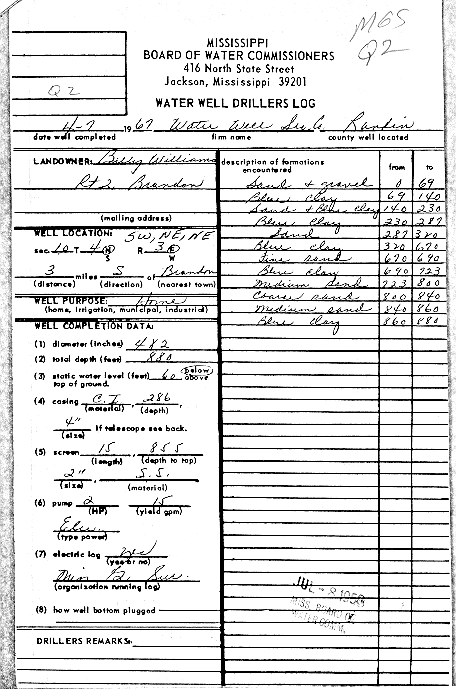 MGS
Q2
Q2
MISSISSIPPI
BOARD OF WATER COMMISSIONERS
416 North State Street
Jackson, Mississippi 39201
WATER WELL DRILLERS LOG
4-7 1967 Water Well Ser. Co. Rankin
date well completed firm name county well located
LANDOWNER: Billy Williams
Rt 2, Brandon
(mailing address)
WELL LOCATION: SW, NE, NE
sec. 10 T 4 N S R 3 E W
3 miles S of Brandon
(distance) (direction) (nearest town)
WELL PURPOSE: Home
(home, irrigation, municipal, industrial)
WELL COMPLETION DATA:
(1) diameter (inches) 4 & 2
(2) total depth (feet) 880
(3) static water level (feet) 60 below above
top of ground.
(4) casing C.I. , 286 ,
(material) (depth)
4" If telescope see back.
(size)
(5) screen 15 , 855
(length) (depth to top)
2" , S.S.
(size) (material)
(6) pump 2 15
(HP) (yield gpm)
Elec.
(type power)
(7) electric log yes
(yes or no)
Miss G. Sur.
(organization running log)
(8) how well bottom plugged
DRILLERS REMARKS:
description of formations encountered from to
Sand & gravel 0 69
Blue clay 69 140
Sand & Blue clay 140 230
Blue clay 230 287
Sand 287 320
Blue clay 320 670
Fine sand 670 690
Blue clay 690 723
Medium sand 723 800
Coarse sand 800 840
Medium sand 840 860
Blue clay 860 880
JUL
MISS. BOARD OF
WATER COMM.